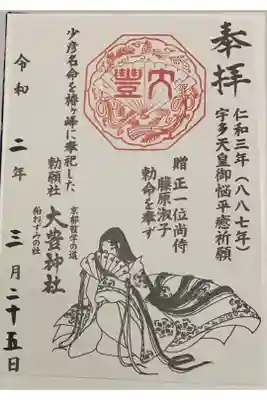 奉拝
仁和三年（八八七年）
宇多天皇御悩平癒祈願
大豊
贈 正一位尚侍
藤原淑子
勅命を奉ず
少彦名命を椿ヶ峰に奉祀した
勅願社
京都哲学の道
大豊神社
狛ねずみの社
令和二年三月二十五日